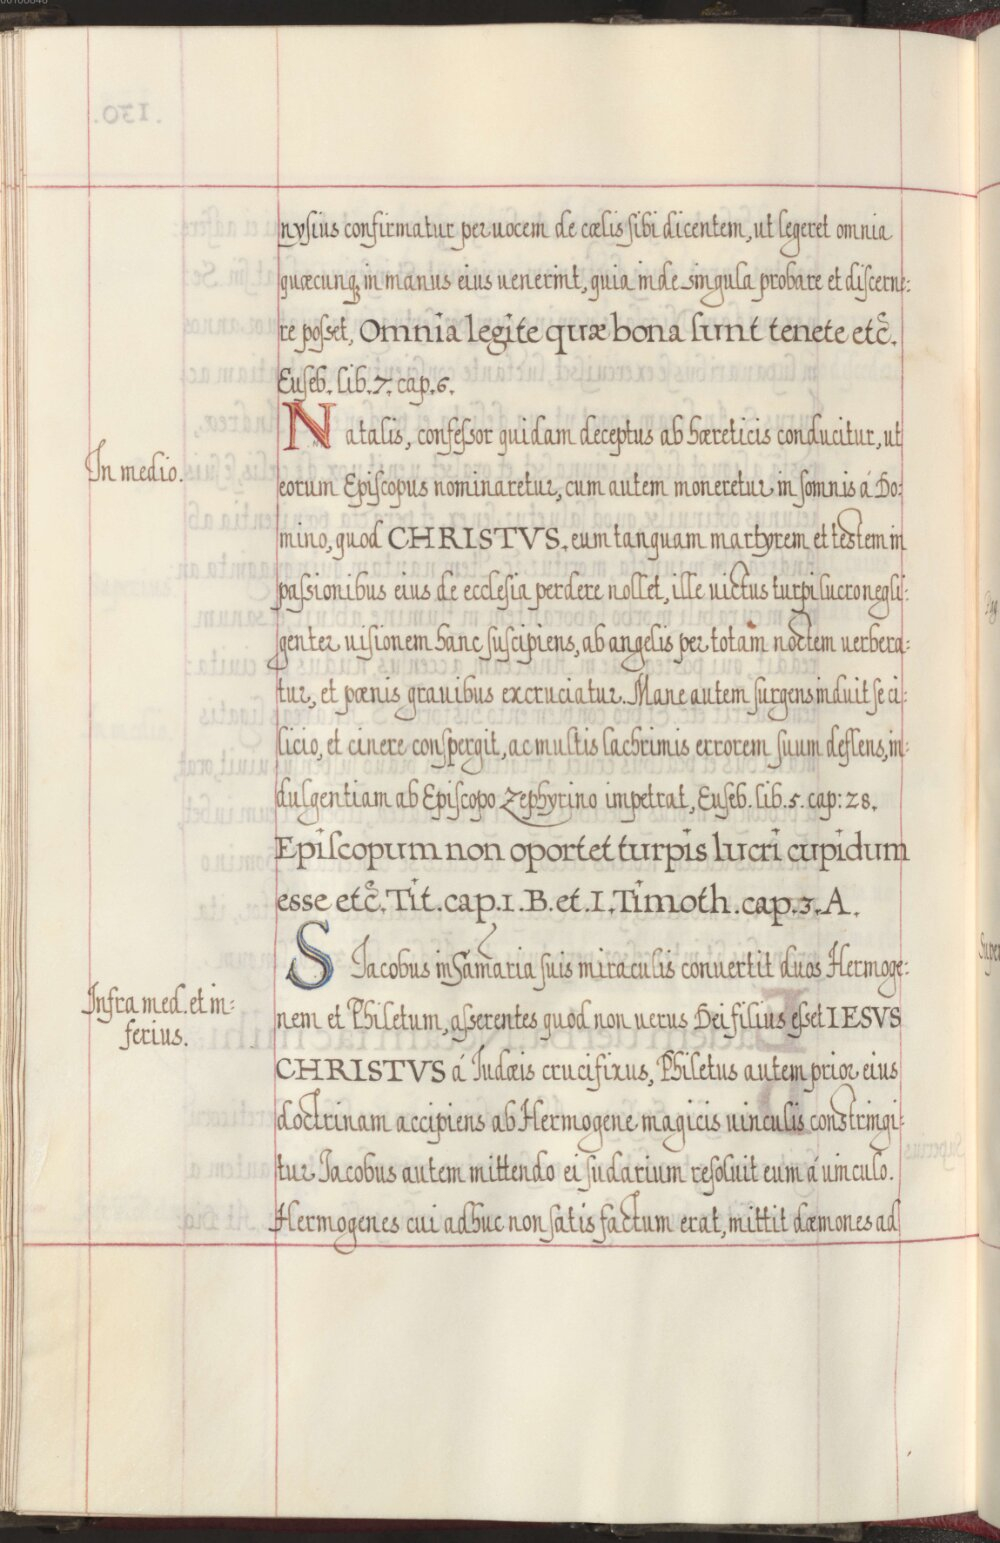 nysius confirmatur per uocem de cælis sibi dicentem, ut legeret omnia
quæcunq; in manus eius uenerint, quia inde singula probare et discerne:
re posset, Omnia legite quæ bona sunt tenete etc̃.
Euseb. lib. 7. cap. 6.
Natalis, confessor quidam deceptus ab hæreticis conducitur, ut
In medio.
eorum Episcopus nominaretur, cum autem moneretur in somnis á Do:
mino, quod CHRISTVS. eum tanquam martyrem et testem in
passionibus eius de ecclesia perdere nollet, ille uictus turpi lucro negli:
genter uisionem hanc suscipiens, ab angelis per totam noctem uerbera:
tur, et pœnis grauibus excruciatur. Mane autem surgens induit se ci:
licio, et cinere conspergit, ac multis lachrimis errorem suum deflens, in:
dulgentiam ab Episcopo Zephyrino impetrat, Euseb. lib. 5. cap: 28.
Episcopum non oportet turpis lucri cupidum
esse etc̃. Tit. cap. 1. B. et. I. Timoth. cap. 3. A.
S Jacobus in Samaria suis miraculis conuertit duos Hermoge:
Infra med. et in:
ferius.
nem et Philetum, asserentes quod non uerus Dei filius esset IESVS
CHRISTVS á Judæis crucifixus, Philetus autem prior eius
doctrinam accipiens ab Hermogene magicis uinculis constringi:
tur Jacobus autem mittendo ei sudarium resoluit eum á uinculo.
Hermogenes cui adhuc non satis factum erat, mittit dæmones ad